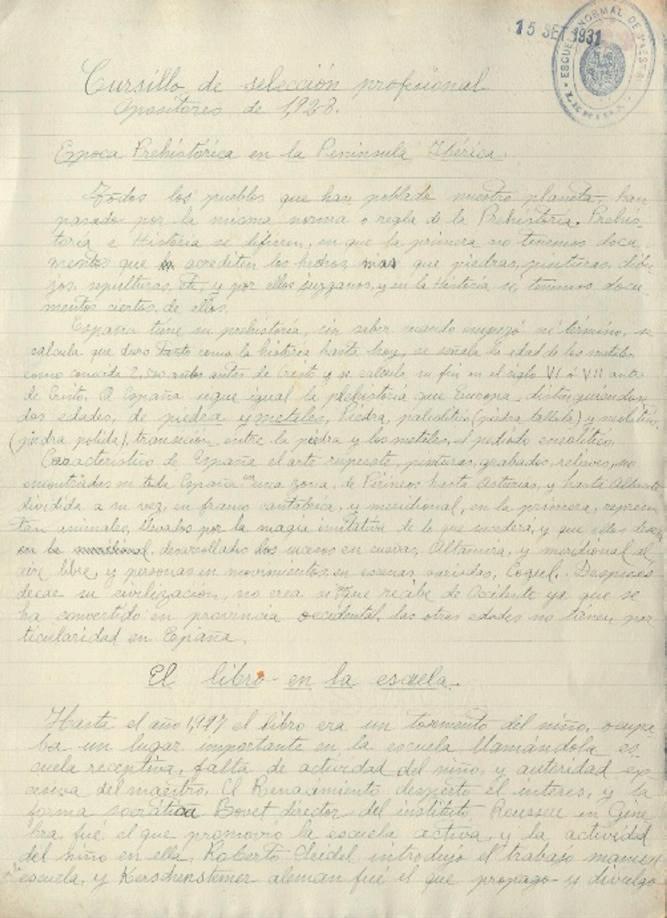 15 SET 1931
ESCUELA NORMAL DE MAESTR
Cursillo de selección profesional
opositores de 1,928.
Epoca Prehistórica en la Peninsula Ibérica.
Todos los pueblos que han poblado nuestro planeta, han
pasado por la misma norma o regla de la Prehistoria. Prehis-
toria e Historia se difieren, en que la primera no tenemos docu
mentos que acrediten los hechos mas que piedras, pinturas, dibu
jos, sepulturas, etc, y por ellos juzgamos, y en la Historia si, tenemos docu-
mentos ciertos de ellos.
España tiene su prehistória, sin saber cuando empezó ni termino, se
calcula que duro tanto como la história hasta hoy, se señala la edad de los metales
como antes de Cristo y se calcula su fin en el siglo VI ó VII ante
de Cristo. A España sigue igual la prehistória que Europa, distinguiendose
dos edades, de piedra y metales, Piedra, paleolitico (piedra tallada) y neolitico
(piedra polida), transicion entre la piedra y los metales, el período eneolítico.
Caracteristico de España el arte rupestre, pinturas, grabados, relieves,
encontradas en toda España una zona, de Pirineos hasta Asturias, y hasta Albacete
dividida a su vez, en franco cantabrica, y meridional, en la primera, represen
tan animales, llevados por la magia imitativa de lo que sucederá, y que
en la meridional, desarrollado los unos en cuevas, Altamira, y meridional al
aire libre, y personas en movimientos, en escenas variadas, Cogul. Despues
decae su civilizacion, no crea si que recibe de Occidente ya que se
ha convertido en provincia occidental, las otras edades no tienen par
ticularidad en España.
El libro en la escuela.
Hasta el año 1,917 el libro era un tormento del niño, ocupa
ba un lugar importante en la escuela llamándola es
cuela receptiva, falta de actividad del niño, y autoridad ex
cesiva del maestro. El Renacimiento desperto el interes, y la
forma socrática Bovet director del instituto Rousseu in Gine
bra, fué el que promovio la escuela activa, y la actividad
del niño en ella, Roberto Seidel introdujo el trabajo manual
escuela, y Kerschensteiner aleman fué el que propago y divulgo